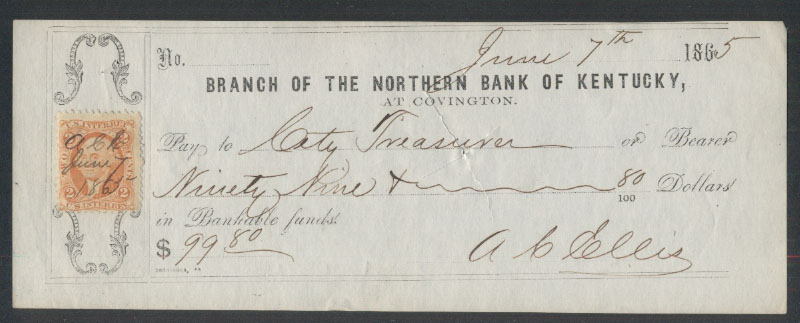 No. June 7th 1865
BRANCH OF THE NORTHERN BANK OF KENTUCKY,
AT COVINGTON.
Pay to City Treasurer or Bearer
Ninety Nine & 80/100 Dollars
in Bankable funds.
$ 99 80
A C Ellis
U.S. INTER. REV.
A.C.E.
June 7
1865
2 2
U.S. INTER. REV.